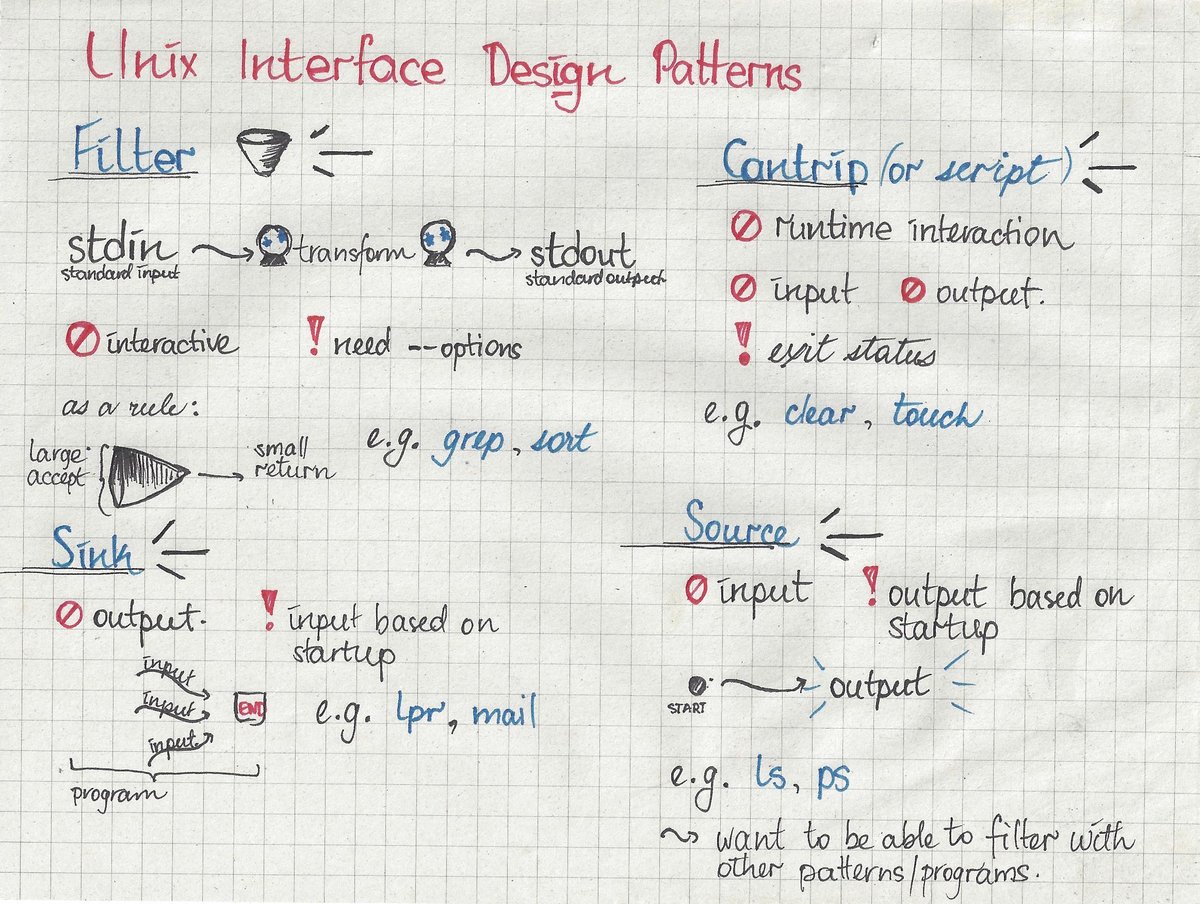 Unix Interface Design Patterns
Filter
stdin transform stdout
standard input
standard output
interactive
need --options
as a rule:
large accept
small return
e.g. grep, sort
Cantrip (or script)
runtime interaction
input
output.
exit status
e.g. clear, touch
Sink
output.
input based on
startup
input
input
input
END
program
e.g. lpr, mail
Source
input
output based on
startup
START
output
e.g. ls, ps
want to be able to filter with
other patterns/programs.